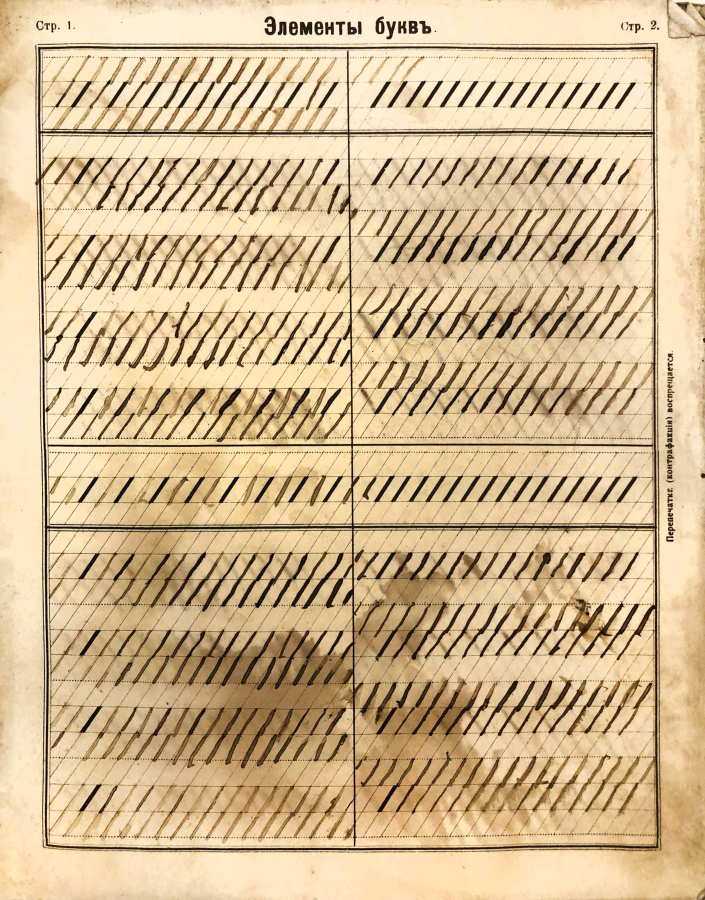 Стр. 1.
Элементы буквъ.
Стр. 2.
Перепечатка (контрафакція) воспрещается.